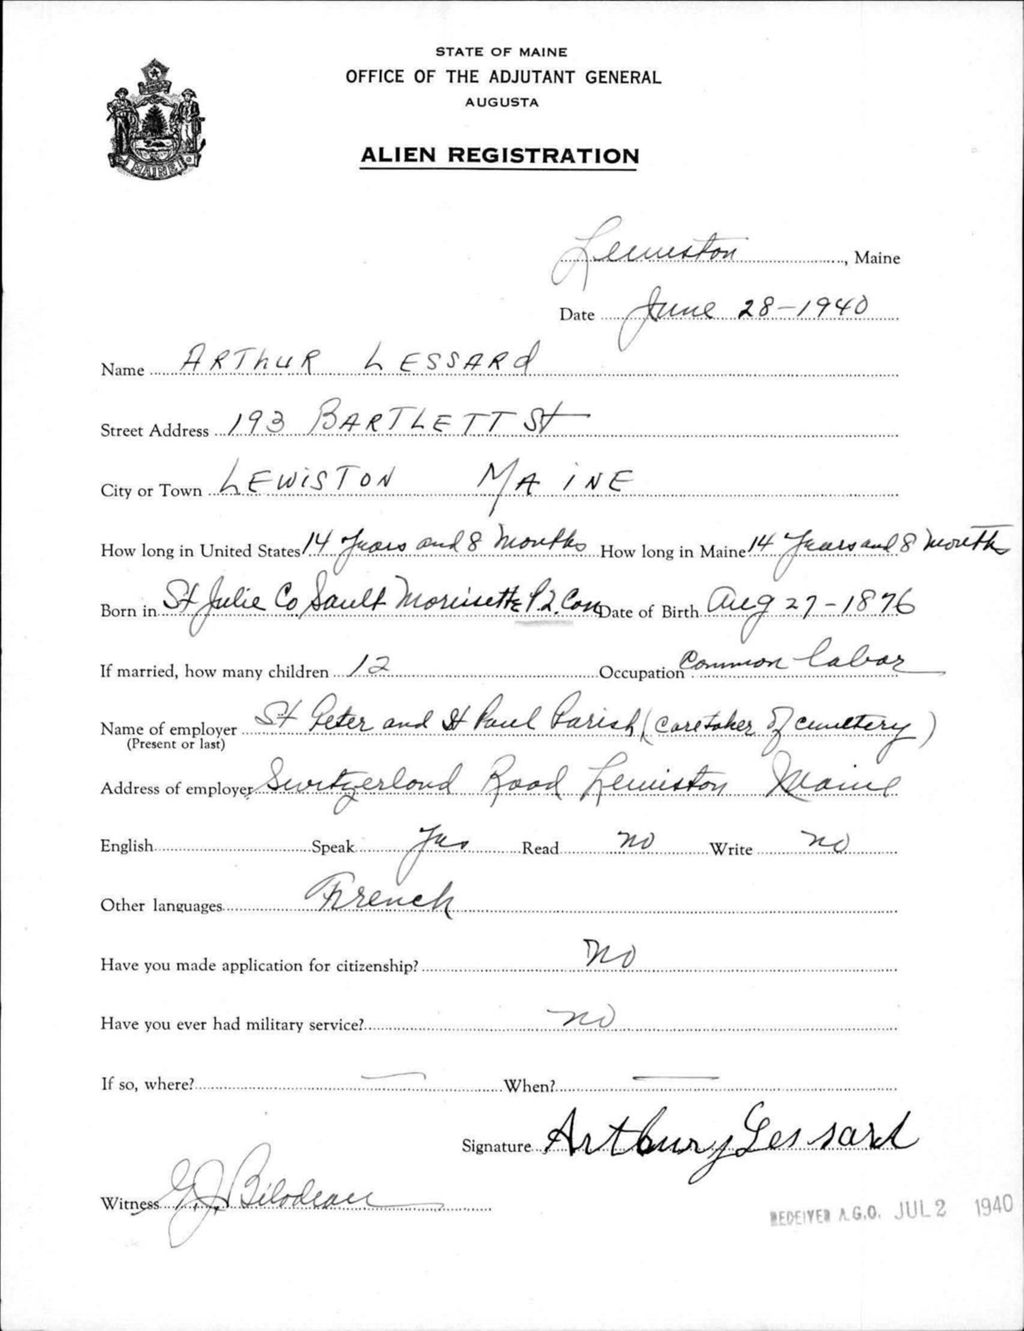 STATE OF MAINE
OFFICE OF THE ADJUTANT GENERAL
AUGUSTA
MAINE
ALIEN REGISTRATION
Lewiston, Maine
Date June 28-1940
Name ARThUR LESSARd
Street Address 193 BARTLETT St
City or Town LEWiSTON MAiNE
How long in United States 14 Years and 8 Months How long in Maine 14 Years and 8 Months
Born in St Julie Co Sault Morissette P.Q. Can Date of Birth Aug 27-1876
If married, how many children 12 Occupation Common labor
Name of employer St Peter and St Paul Parish (caretaker of cemetery)
(Present or last)
Address of employer Switzerland Road Lewiston Maine
English Speak Yes Read no Write no
Other languages French
Have you made application for citizenship? No
Have you ever had military service? no
If so, where? — When? —
Signature Arthury Lessard
Witness G.J. Bilodeau
RECEIVED A.G.O. JUL 2 1940